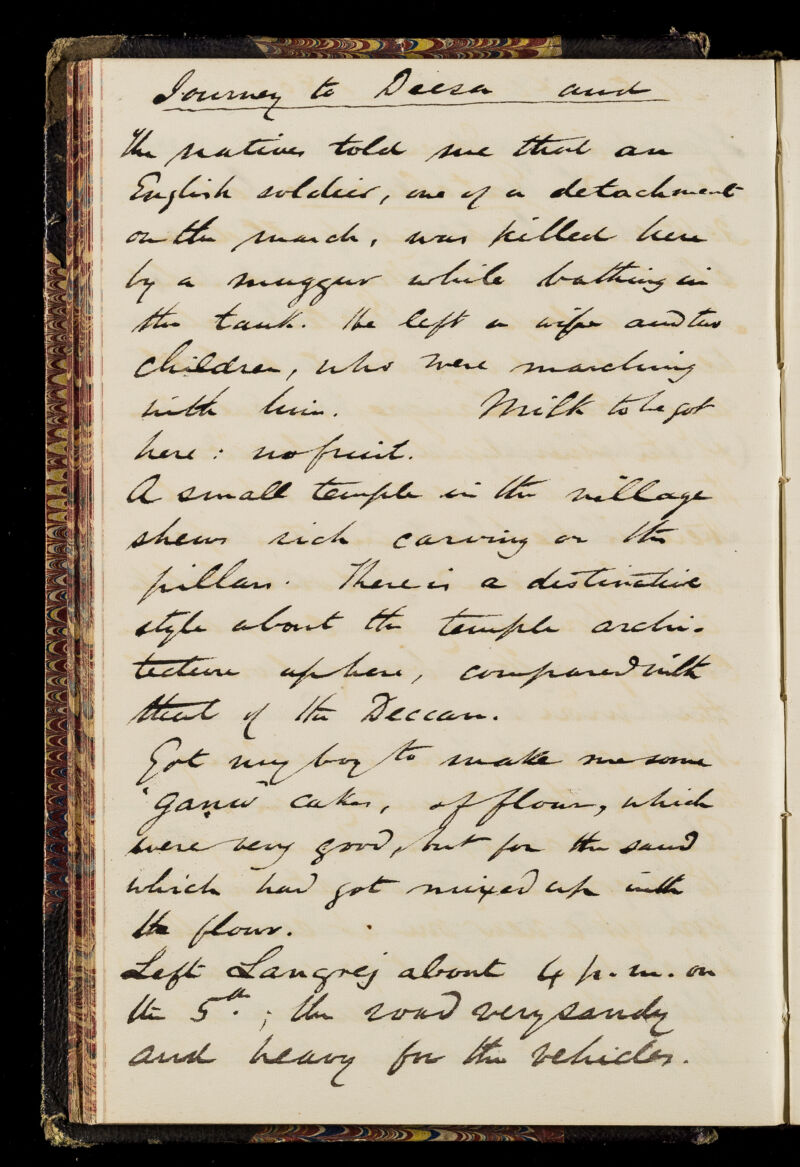 Journey to Deesa and
The natives told me that an
English soldier, one of a detachment
on the march, was killed here
by a muggur while bathing in
the tank. He left a wife and two
children, who were marching
with him. Milk to be got
here: no fruit.
A small temple in the village
shews rich carving on the
pillars. There is a distinctive
style about the temple archi-
tecture up here, compared with
that of the Deccan.
Got my boy to make me some
cakes, of flour, which
were very good, but for the sand
which had got mixed up with
the flour.
Left Langrej about 4 p.m. on
the 5th.; the road very sandy
and heavy for the vehicles.